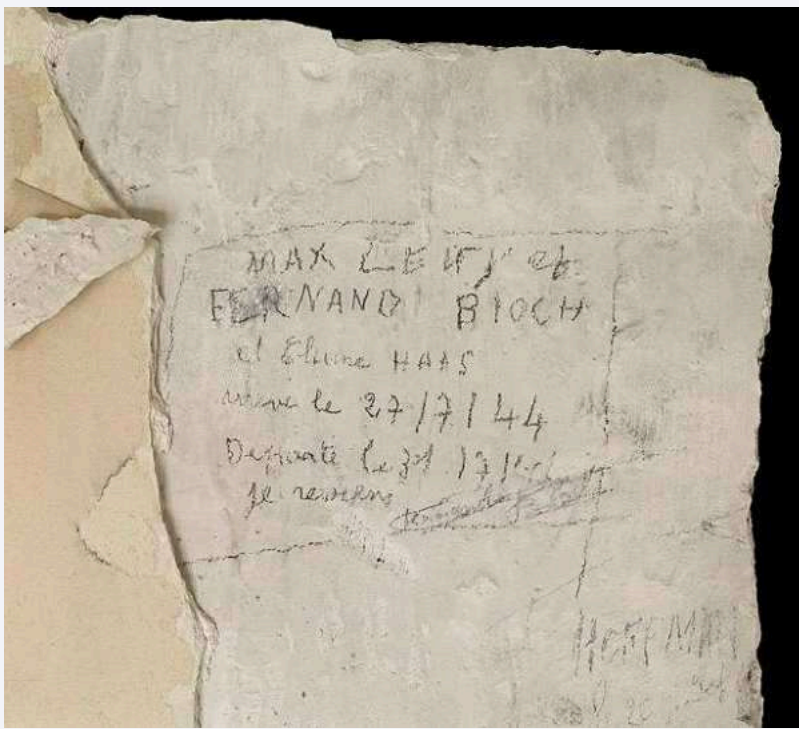 MAX LEVY et
FERNAND BLOCH
et Eliane HAAS
arrivé le 27/7/44
Déporté le 31/7/44
je reviens
HOFFMAN
le 20